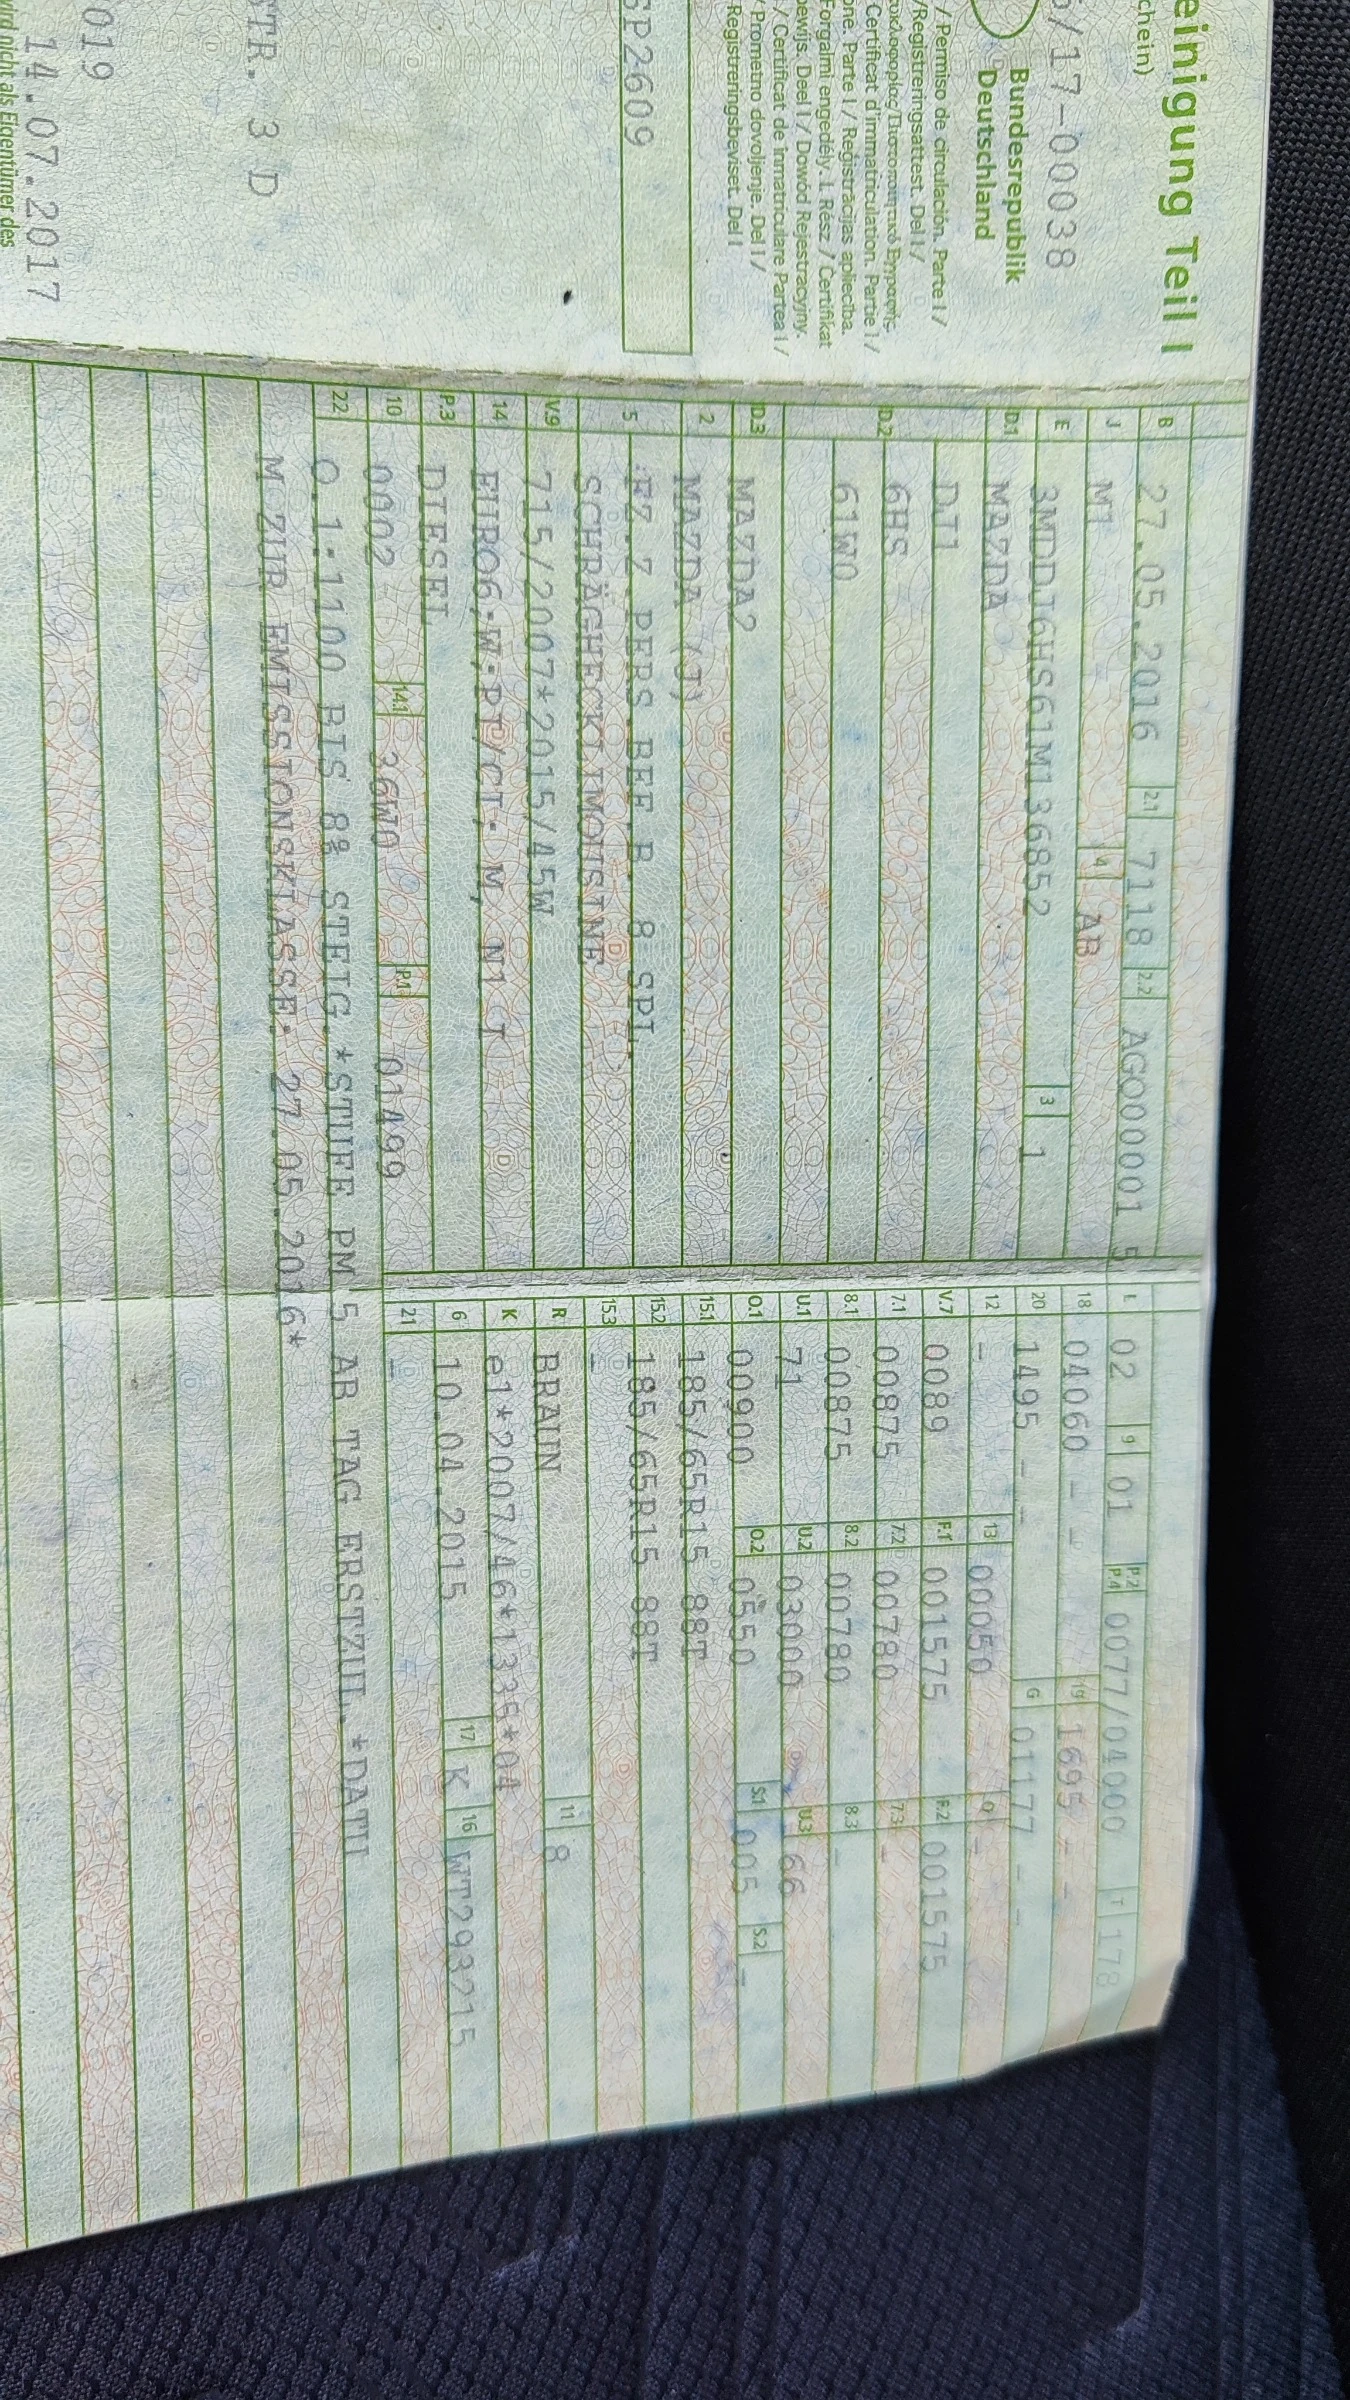 einigung Teil I
chein)
/17-00038
Bundesrepublik
Deutschland
/ Permiso de circulación. Parte I /
/Registreringsattest. Del I /
Certificat d'immatriculation. Partie I /
one. Parte I / Reģistrācijas apliecība.
Forgalmi engedély. I. Rész / Certifikat
bewijs. Deel I / Dowód Rejestracyjny.
/ Certificat de înmatriculare Partea I /
/ Prometno dovoljenje. Del I /
Registreringsbeviset. Del I
SP2609
STR. 3 D
019
14.07.2017
wird nicht als Eigentümer des
B 27.05.2016 2.1 7118 2.2 AGO000001 5
J M1 4 AB
E 3MDDJ6HS61M136852 3 1
D.1 MAZDA
DJ1
D.2 6HS
61W0
D.3 MAZDA2
2 MAZDA (J)
5 FZ.Z.PERS.BEF.B. 8 SPL.
SCHRÄGHECKLIMOUSINE
V.9 715/2007*2015/45W
14 EURO6;W;PI/CI; M, N1 I
P.3 DIESEL
10 0002 14.1 36W0 P.1 01499
22 O.1:1100 BIS 8% STEIG.*STUFE PM 5 AB TAG ERSTZUL.*DATU
M ZUR EMISSIONSKLASSE: 27.05.2016*
L 02 9 01 P.2 P.4 0077/04000 T 178
18 04060 - - 19 1695 - -
20 1495 - - G 01177 - -
12 - 13 00050 Q -
V.7 0089 F.1 001575 F.2 001575
7.1 00875 7.2 00780 7.3 -
8.1 00875 8.2 00780 8.3 -
U.1 71 U.2 03000 U.3 66
O.1 00900 O.2 0550 S.1 005 S.2 -
15.1 185/65R15 88T
15.2 185/65R15 88T
15.3 -
R BRAUN 11 8
K e1*2007/46*1335*04
6 10.04.2015 17 K 16 WT293215
21 -